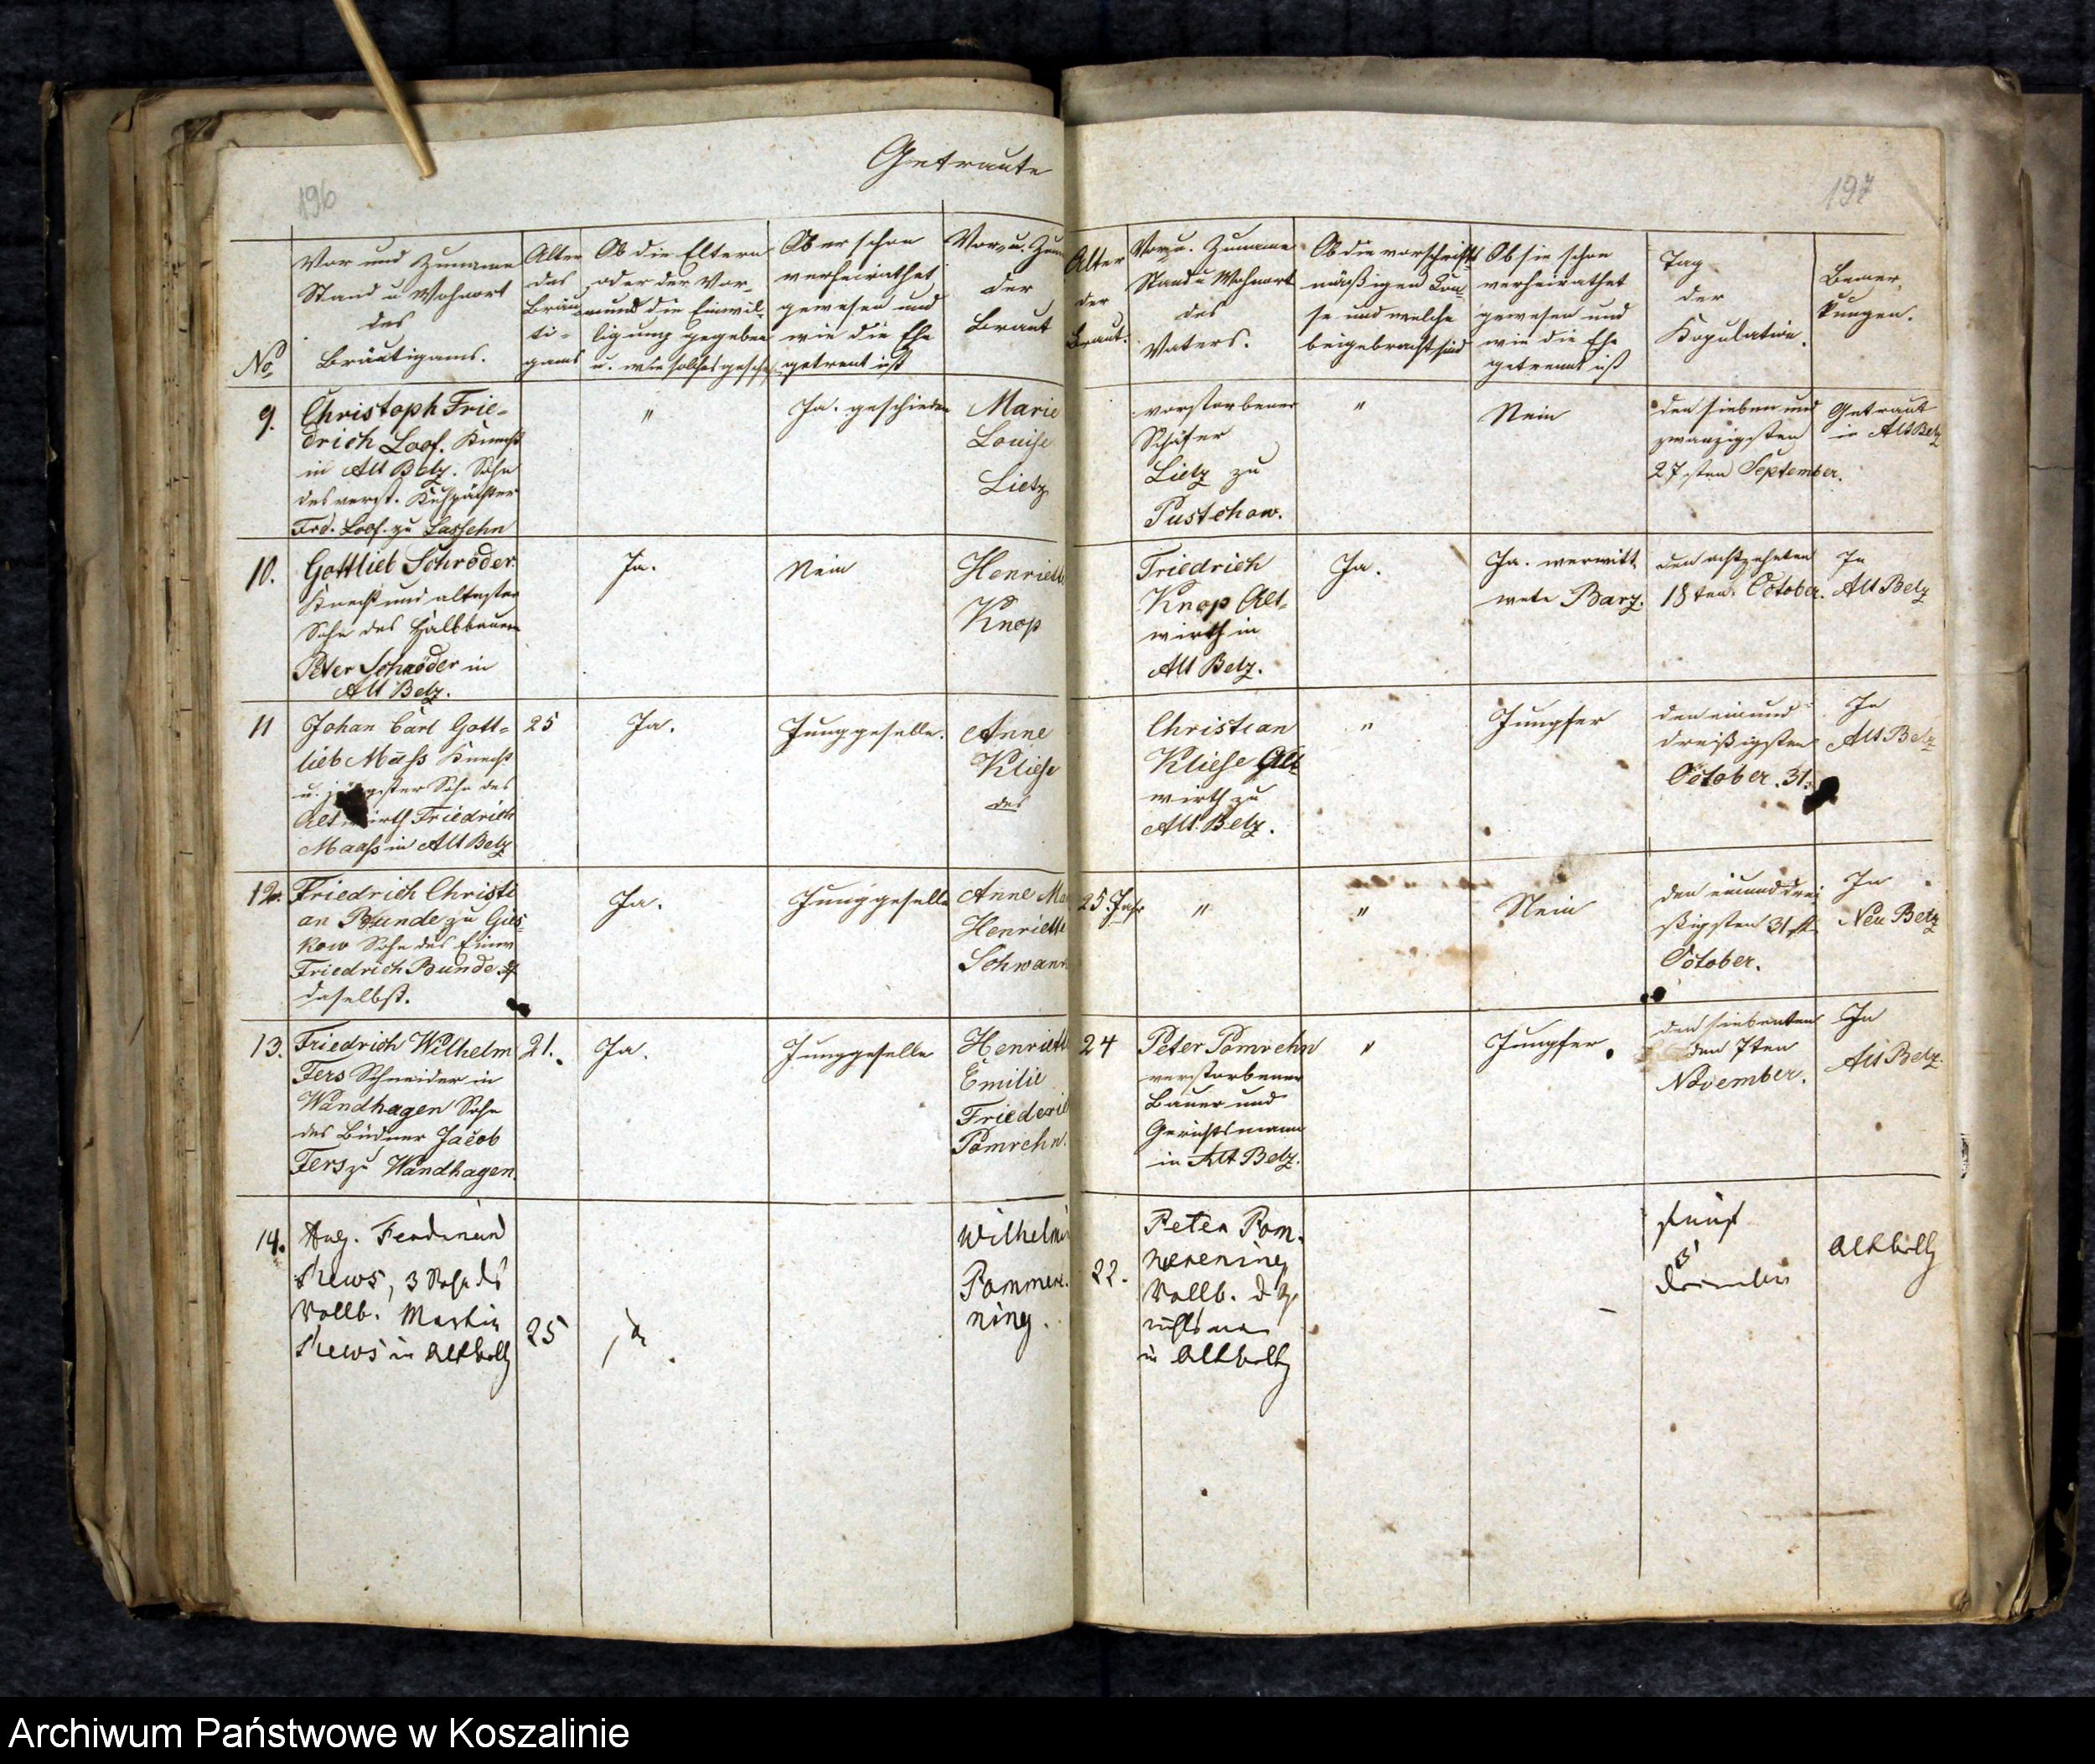 Getraute
196
197
No
Vor und Zuname
Stand u Wohnort
des
Bräutigams.
Alter
des
Bräu-
ti-
gams
Ob die Eltern
oder der Vor-
mund die Einwil-
ligung gegeben
u. wie solches gescheh
Ob er schon
verheirathet
gewesen und
wie die Ehe
getrent ist
Vor u. Zun
der
Braut
Alter
der
Braut.
Vor u. Zuname
Stand u Wohnort
des
Vaters.
Ob die vorschrifts
mäßigen
se und welche
beigebracht sind
Ob sie schon
verheirathet
gewesen und
wie die Ehe
getrennt ist
Tag
der
Kopulation.
Bemer-
kungen.
9.
Christoph Frie-
drich Loof. Knecht
in Alt Belz. Sohn
des verst. Kuhpächter
Frd. Loof. zu Lassehn
"
Ja. geschieden
Marie
Louise
Lietz
verstorbener
Schäfer
Lietz zu
Pustchow.
"
Nein
den sieben und
zwanzigsten
27sten September.
Getraut
in Alt Belz
10.
Gottlieb Schröder
Knecht und altester
Sohn des Halbbauern
Peter Schröder in
Alt Belz.
Ja.
Nein
Henriette
Knop
Friedrich
Knop Alt-
wirth in
Alt Belz.
Ja.
Ja. verwitt
wete Barz.
den achtzehnten
18ten October.
In
Alt Belz
11
Johan Carl Gott-
lieb Maass Knecht
u. jüngster Sohn des
Altwirth Friedrich
Maass in Alt Belz
25
Ja.
Junggeselle.
Anne
Kliese
des
Christian
Kliese Alt
wirth zu
Alt. Belz.
"
Jungfer
den einund
dreißigsten
October. 31.
In
Alt Belz
12.
Friedrich Christi
an Bunde zu Güs-
kow Sohn des Einw
Friedrich Bunde
daselbst.
Ja.
Junggeselle
Anne Ma
Henriette
Schwann
25. Jahr
"
"
Nein
den einunddrei
ßigsten 31st
October.
In
Neu Belz
13.
Friedrich Wilhelm
Fers Schneider in
Wandhagen Sohn
des Büdner Jacob
Fers zu Wandhagen.
21.
Ja.
Junggeselle
Henriett
Emilie
Friederik
Pomrehn.
24
Peter Pomrehn
verstorbener
Bauer und
Gerichtsmann
in Alt Belz.
"
Jungfer.
den siebenten
den 7ten
November.
In
Alt Belz.
14.
Aug. Ferdinand
Thews, 3 Sohn ds
Vollb. Martin
Thews in Altbelz
25
Ja.
Wilhelmi
Pommere-
ning.
22.
Peter Pom-
merening
Vollb. Ge
richtsman
in Altbelz
fünf
5
December
Altbelz
Archiwum Państwowe w Koszalinie